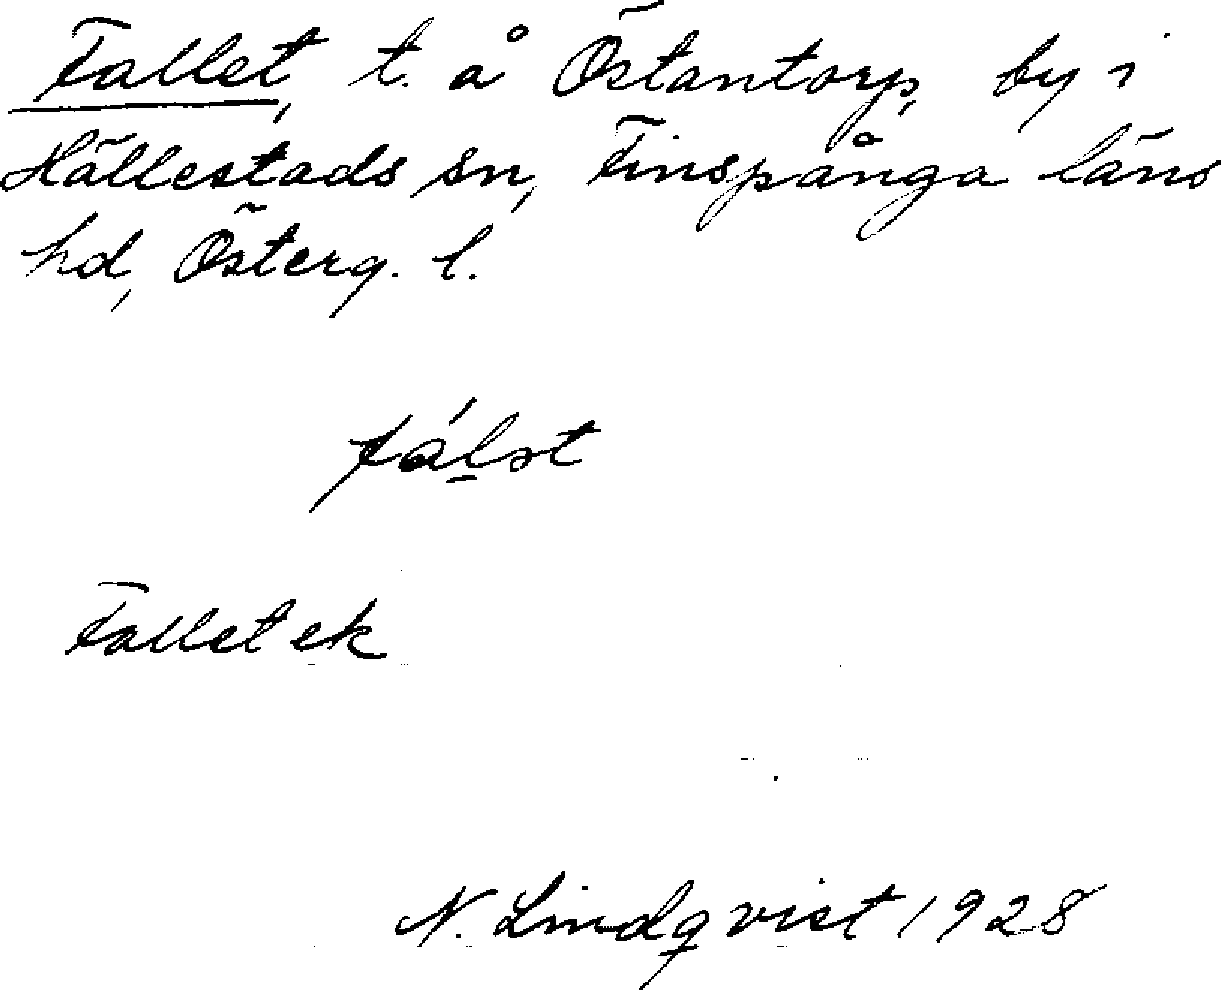 Fallet, t. å Östantorp, by i
Hällestads sn, Finspånga läns
hd, Österg. l.
fál̲ət
Fallet ek
N. Lindqvist 1928